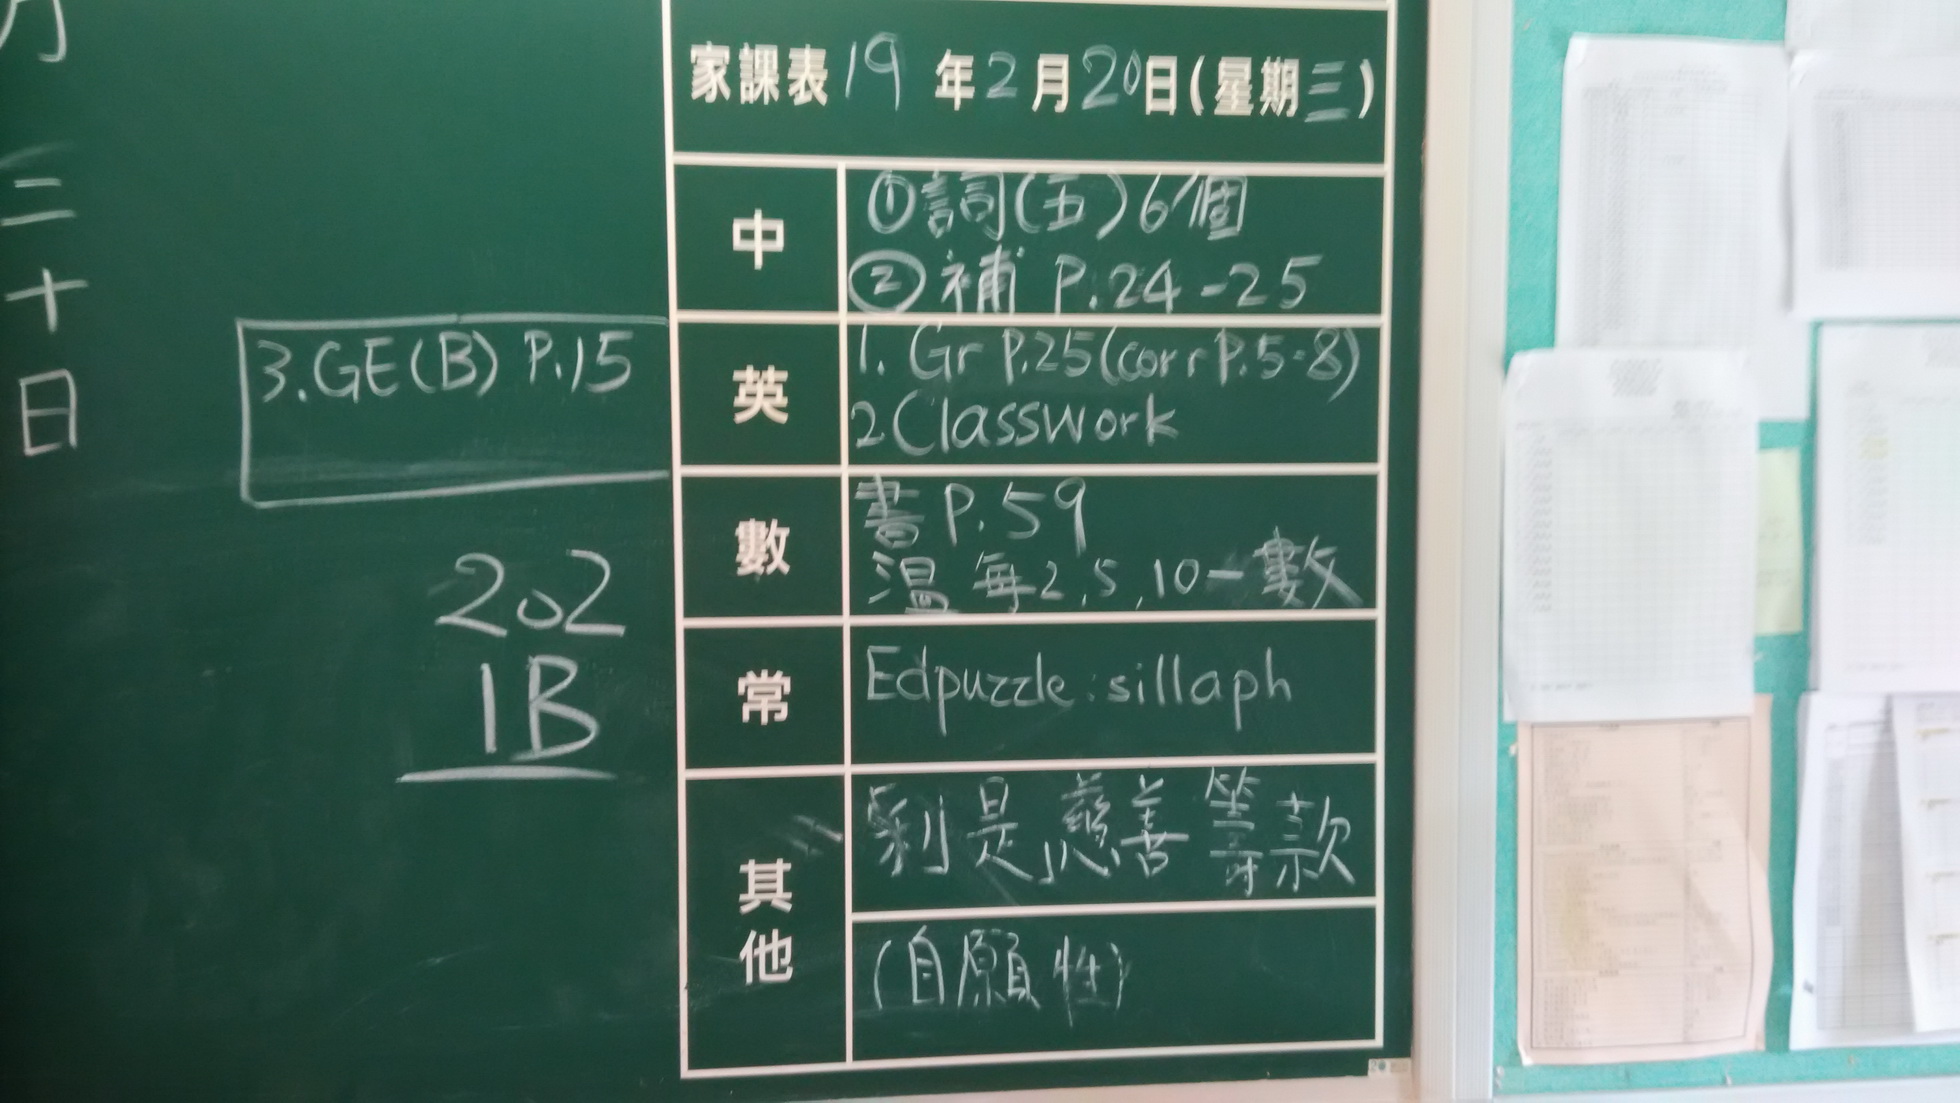 月
二
十
日
家課表 19 年 2 月 20 日 (星期三)
中
①詞(五)6個
②補 P.24-25
英
1. Gr P.25(corr P.5-8)
2 Classwork
3.GE(B) P.15
數
書 P.59
溫 每2,5,10一數
202
1B
常
Edpuzzle:sillaph
其他
利是慈善籌款
(自願性)